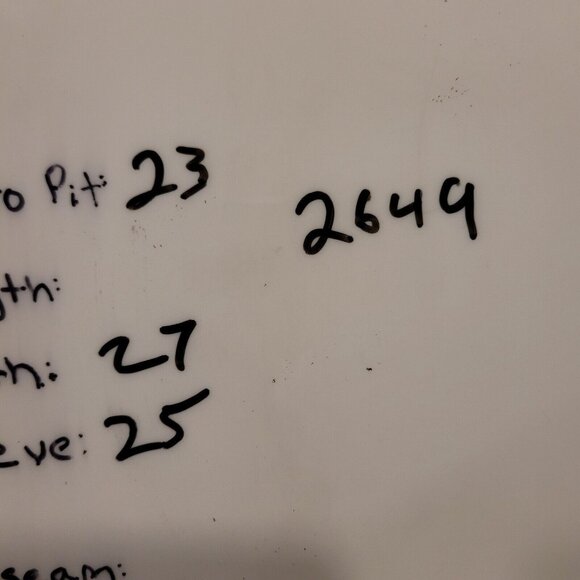 o Pit: 23
2649
gth:
th: 27
eve: 25
seam: